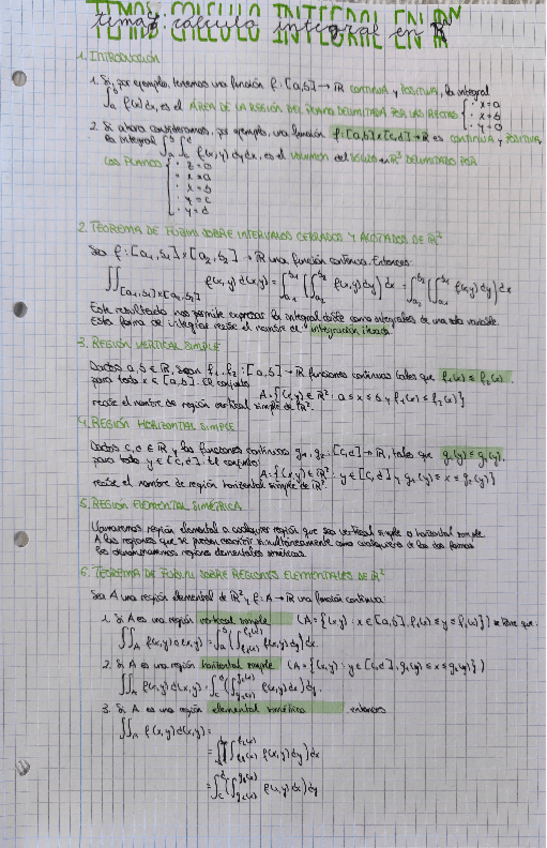 TEMA 7: CÁLCULO INTEGRAL EN Rⁿ
tema 7: cálculo integral en Rⁿ
1. INTRODUCCIÓN
1. Si, por ejemplo, tenemos una función f: [a,b] → ℝ CONTINUA y POSITIVA, la integral
∫ₐᵇ f(x) dx, es el ÁREA DE LA REGIÓN DEL PLANO DELIMITADA POR LAS RECTAS { · x=a
· x=b
· y=0
2. Si ahora consideramos, por ejemplo, una función f: [a,b]×[c,d] → ℝ es CONTINUA y POSITIVA,
la integral ∫ₐᵇ ∫ᶜᵈ f(x,y) dy dx, es el VOLUMEN del en ℝ³ DELIMITADO POR
LOS PLANOS { · z=0
· x=a
· x=b
· y=c
· y=d
2. TEOREMA DE FUBINI SOBRE INTERVALOS CERRADOS Y ACOTADOS DE ℝ²
Sea f: [a₁,b₁]×[a₂,b₂] → ℝ una función continua. Entonces:
∬[a₁,b₁]×[a₂,b₂] f(x,y) d(x,y) = ∫ₐ₁ᵇ¹ (∫ₐ₂ᵇ² f(x,y) dy) dx = ∫ₐ₂ᵇ² (∫ₐ₁ᵇ¹ f(x,y) dy) dx
Este resultado nos permite expresar la integral doble como integrales de una sola variable.
Esta forma de integrar recibe el nombre de "integración iterada"
3. REGIÓN VERTICAL SIMPLE
Dados a,b ∈ ℝ, sean f₁, f₂: [a,b] → ℝ funciones continuas tales que f₁(x) ≤ f₂(x),
para todo x ∈ [a,b]. El conjunto
A = {(x,y) ∈ ℝ²: a ≤ x ≤ b y f₁(x) ≤ f₂(x)}
recibe el nombre de región vertical simple de ℝ².
4. REGIÓN HORIZONTAL SIMPLE
Dados c,d ∈ ℝ y las funciones continuas g₁, g₂: [c,d] → ℝ, tales que g₁(y) ≤ g₂(y),
para todo y ∈ [c,d]. El conjunto
A = {(x,y) ∈ ℝ²: y ∈ [c,d] y g₁(y) ≤ x ≤ g₂(y)}
recibe el nombre de región horizontal simple de ℝ².
5. REGIÓN ELEMENTAL SIMÉTRICA
Llamaremos región elemental a cualquier región que sea vertical simple o horizontal simple
A las regiones que se puedan escribir simultáneamente como cualquiera de las dos formas
las denominaremos regiones elementales simétricas.
6. TEOREMA DE FUBINI SOBRE REGIONES ELEMENTALES DE ℝ²
Sea A una región elemental de ℝ² y f: A → ℝ una función continua:
1. Si A es una región vertical simple (A = {(x,y): x ∈ [a,b], f₁(x) ≤ y ≤ f₂(x)}) se tiene que:
∬A f(x,y) d(x,y) = ∫ₐᵇ (∫f₁(x)f₂(x) f(x,y) dy) dx.
2. Si A es una región horizontal simple (A = {(x,y): y ∈ [c,d], g₁(y) ≤ x ≤ g₂(y)})
∬A f(x,y) d(x,y) = ∫cᵈ (∫g₁(x)g₂(x) f(x,y) dx) dy.
3. Si A es una región elemental simétrica entonces
∬A f(x,y) d(x,y) =
= ∫ (∫f₁(x)f₂(x) f(x,y) dy) dx
= ∫cᵈ (∫g₁(x)g₂(x) f(x,y) dx) dy